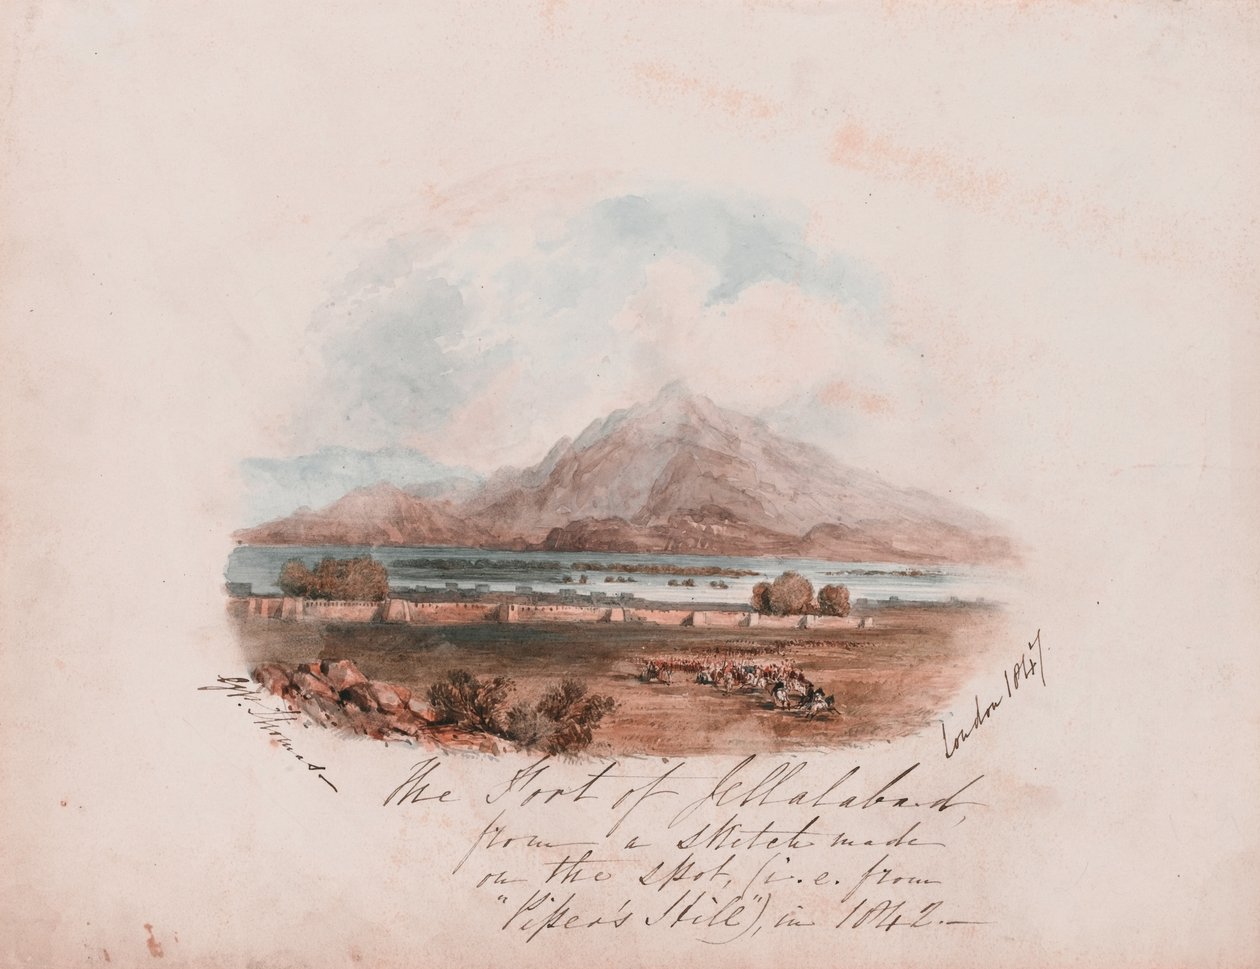 Thomas
London 1847.
The Fort of Jellalabad,
from a sketch made
on the spot, (i.e. from
"Piper's Hill"), in 1842.—